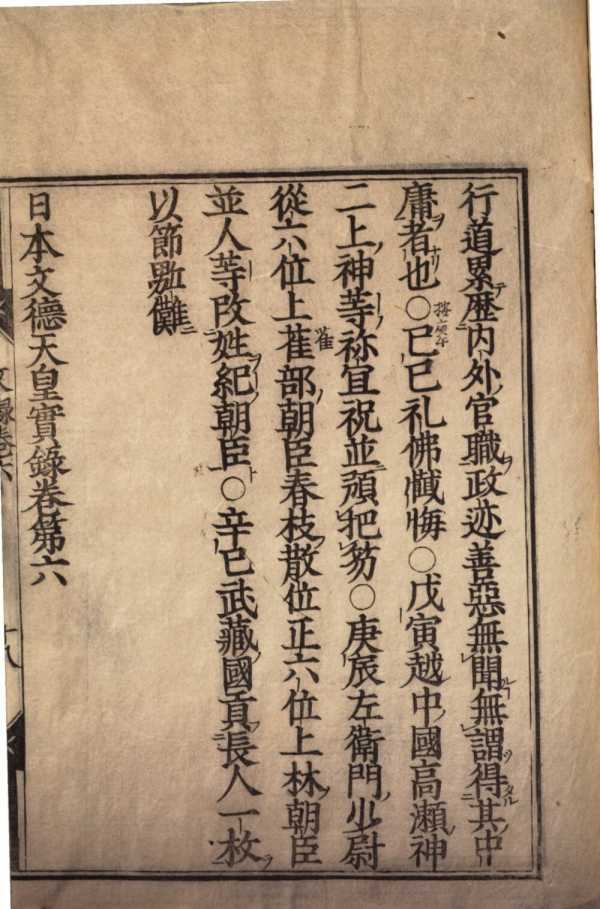 行道累歴内外官職政迹善惡無聞無謂得其中
庸者也○己巳礼佛懺悔○戊寅越中國高瀬神
二上神等祢宜祝並預把笏○庚辰左衛門少尉
從六位上雀部朝臣春枝散位正六位上林朝臣
並人等改姓紀朝臣○辛巳武藏國貢長人一枚
以節敺儺
日本文德天皇實録巻第六